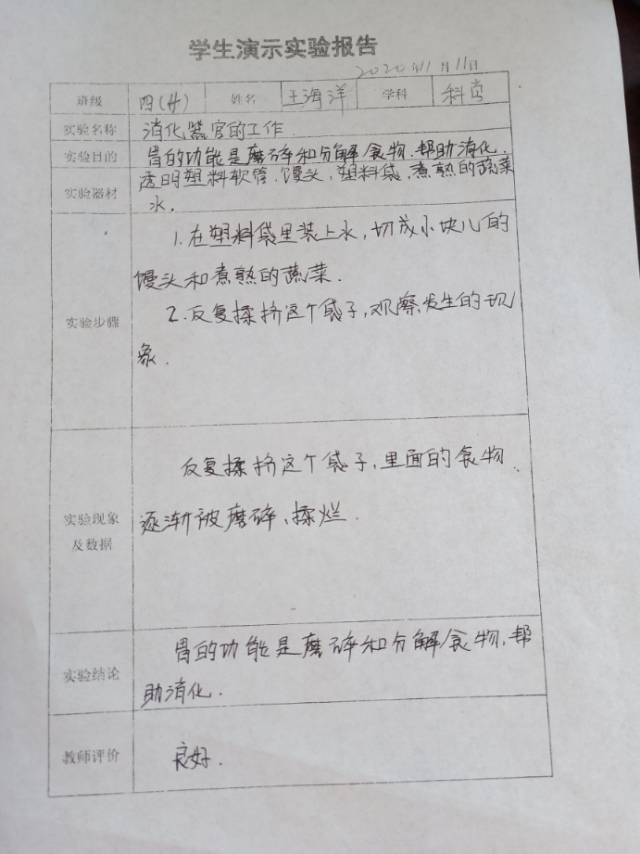 学生演示实验报告
2020年11月11日
班级 四(廿) 姓名 王海洋 学科 科
实验名称 消化器官的工作
实验目的 胃的功能是磨碎和分解食物.帮助消化.
实验器材 透明塑料软管.馒头,塑料袋,煮熟的蔬菜
水.
1.在塑料袋里装上水,切成小块儿的
馒头和煮熟的蔬菜.
实验步骤
2.反复揉挤这个袋子,观察发生的现
象.
反复揉挤这个袋子,里面的食物
实验现象
及数据
逐渐被磨碎、揉烂.
胃的功能是磨碎和分解食物,帮
实验结论
助消化.
教师评价 良好.